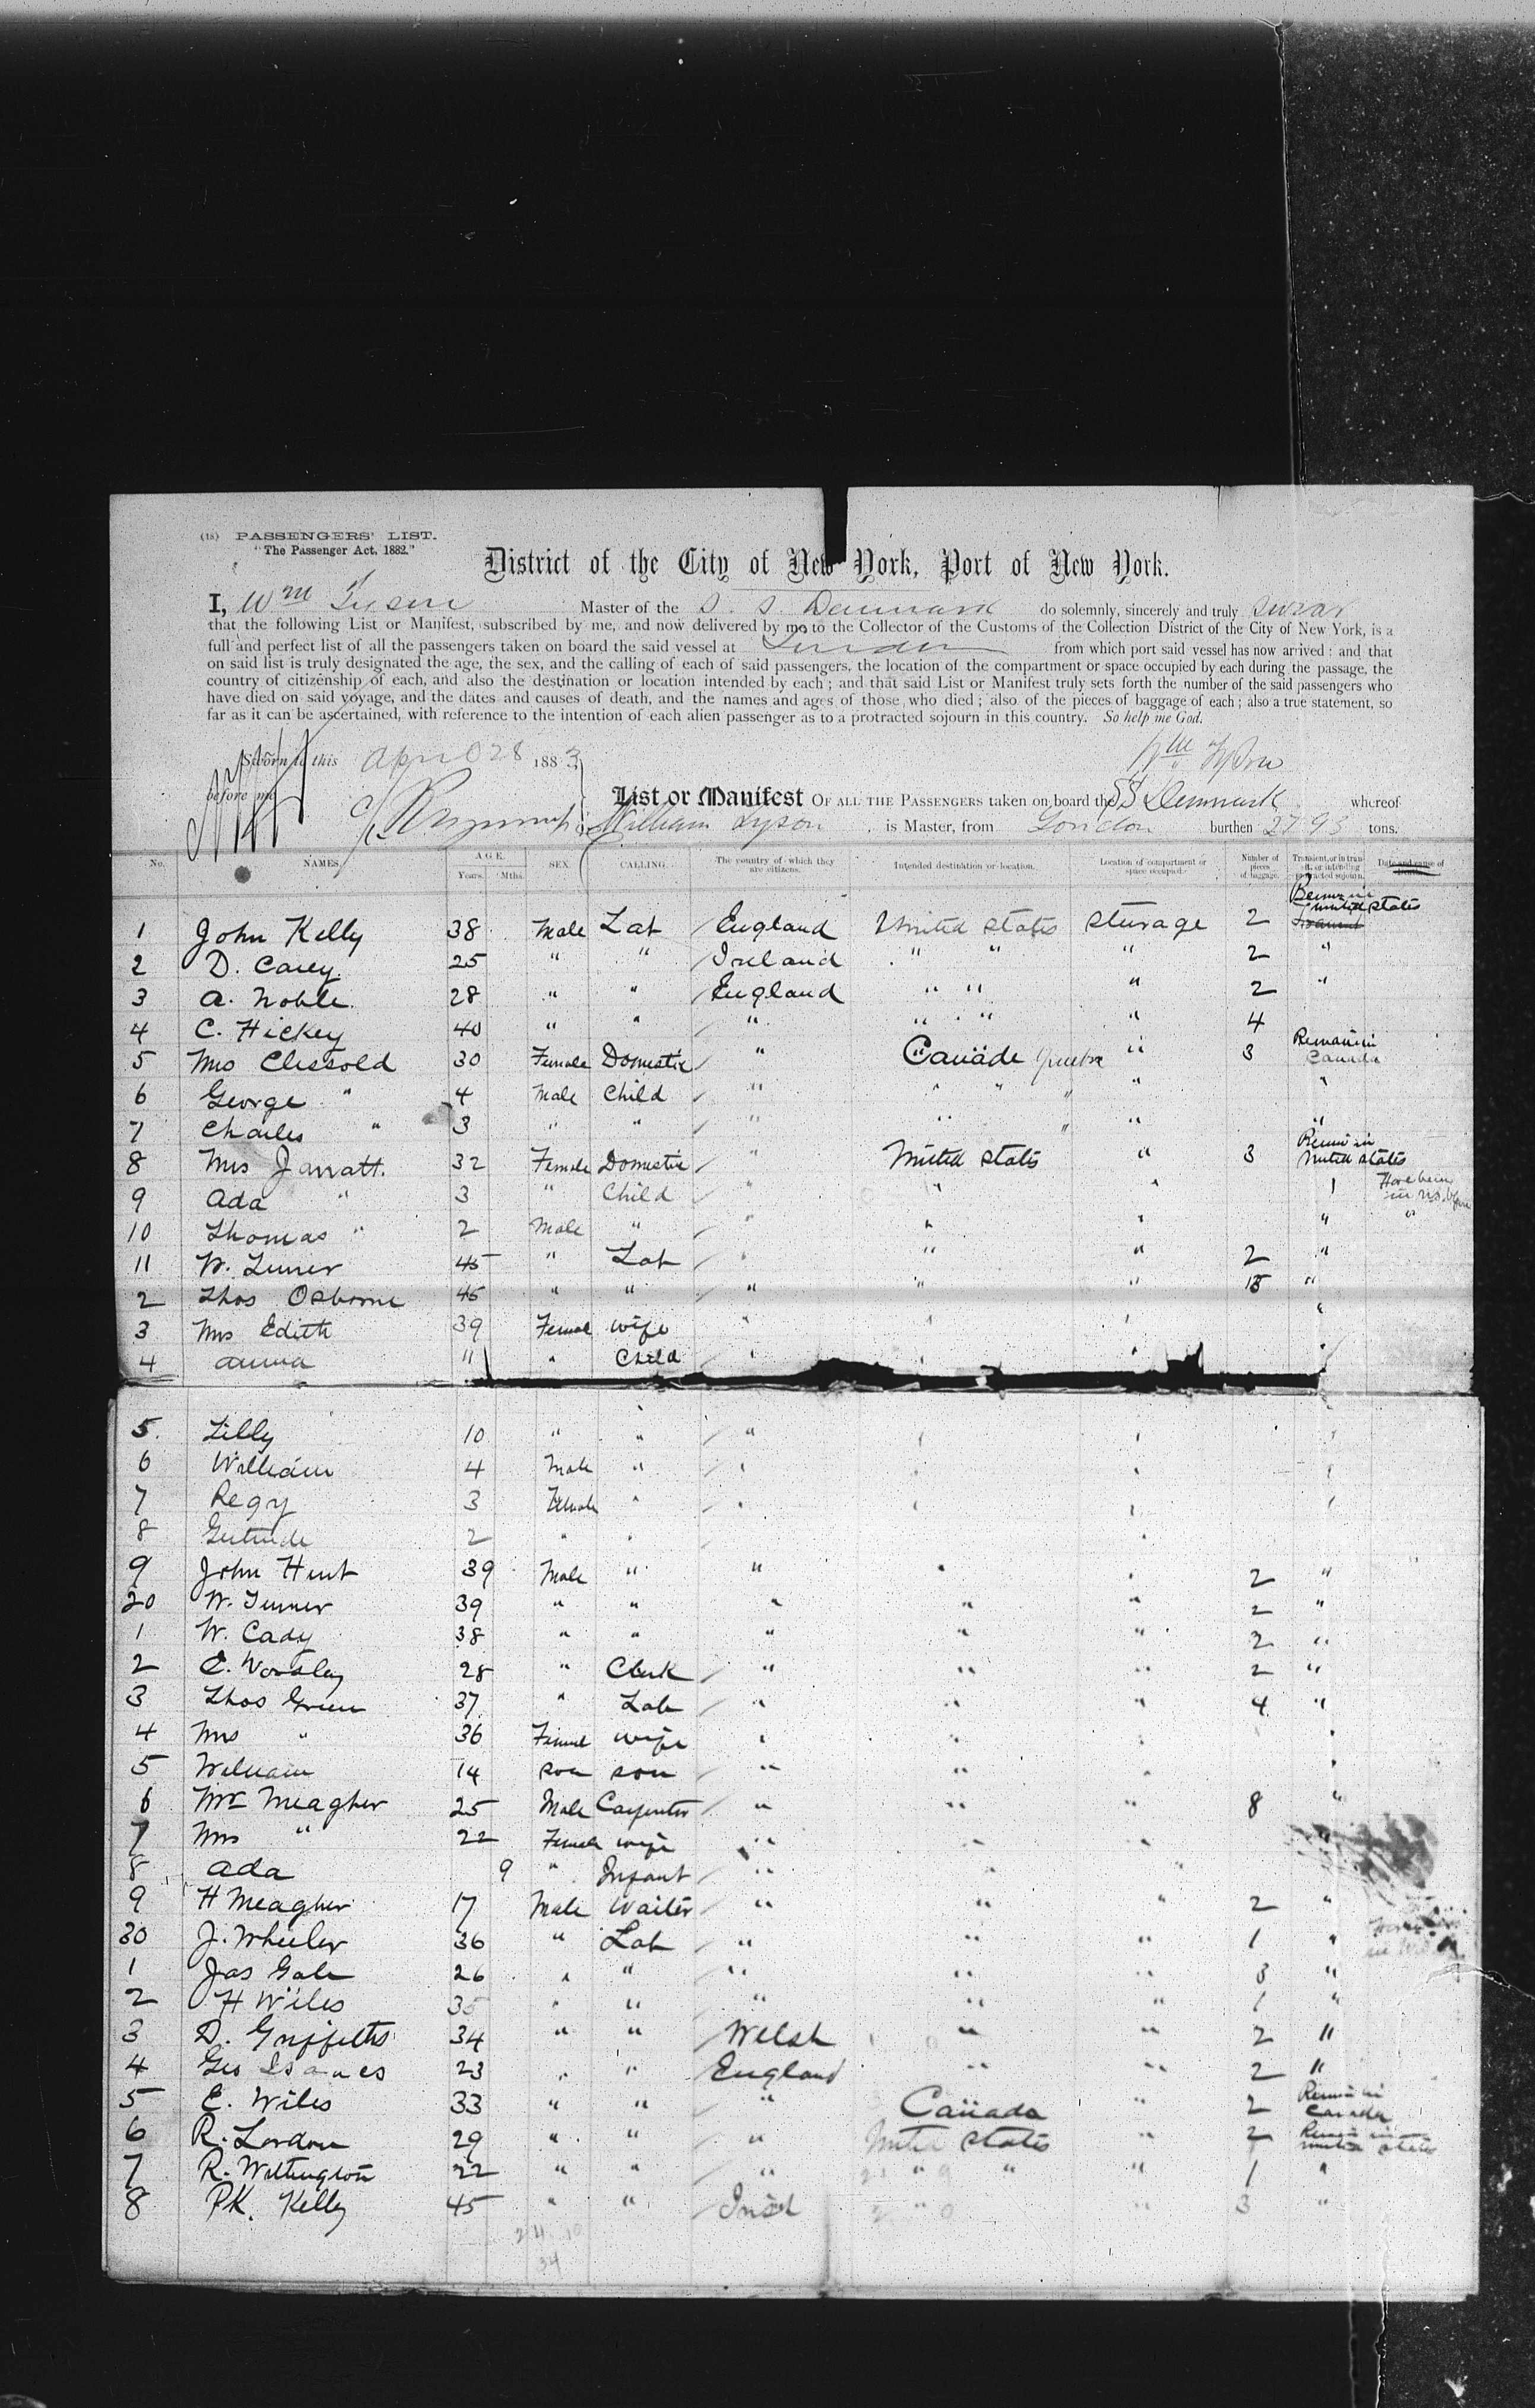 (18) PASSENGERS' LIST.
"The Passenger Act, 1882."
District of the City of New York, Port of New York.
I, Wm Tyson Master of the S. S. Denmark do solemnly, sincerely and truly swear
that the following List or Manifest, subscribed by me, and now delivered by me to the Collector of the Customs of the Collection District of the City of New York, is a
full and perfect list of all the passengers taken on board the said vessel at London from which port said vessel has now arrived; and that
on said list is truly designated the age, the sex, and the calling of each of said passengers, the location of the compartment or space occupied by each during the passage, the
country of citizenship of each, and also the destination or location intended by each; and that said List or Manifest truly sets forth the number of the said passengers who
have died on said voyage, and the dates and causes of death, and the names and ages of those who died; also of the pieces of baggage of each; also a true statement, so
far as it can be ascertained, with reference to the intention of each alien passenger as to a protracted sojourn in this country. So help me God.
Sworn to this April 28 1883 Wm Tyson
before me
List or Manifest OF ALL THE PASSENGERS taken on board the SS Denmark whereof
William Tyson is Master, from London burthen 2793 tons.
No. NAMES. AGE. Years. Mths. SEX. CALLING. The country of which they are citizens. Intended destination or location. Location of compartment or space occupied. Number of pieces of baggage. Transient, or in transit, or intending protracted sojourn. Date and cause of
1 John Kelly 38 Male Lab England United States Sturage 2 Remain in United States
2 D. Carey 25 " " Ireland " " " 2 "
3 A. Noble 28 " " England " " " 2 "
4 C. Hickey 40 " " " " " " 4
5 Mrs Clissold 30 Female Domestic " Canade " 3 Remain in Canada
6 George " 4 Male Child " " " " "
7 Charles " 3 " " " " " " "
8 Mrs Jarratt. 32 Female Domestic " United States " 3 Remain in United States
9 Ada " 3 " Child " " " Have been in U.S. before
10 Thomas " 2 Male " " " " " "
11 W. 45 " Lab " " " 2 "
2 Thos Osborne 45 " " " " " 15 "
3 Mrs Edith 39 Female Wife " " " "
4 Anna 11 " Child " " " "
5. Lilly 10 " " " " " "
6 William 4 Male " " " " "
7 Regy 3 Female " " " " "
8 Gertrude 2 " " "
9 John Hunt 39 Male " " " " 2 "
20 W. 39 " " " " " 2 "
1 W. Cady 38 " " " " " 2 "
2 E. Worsley 28 " Clerk " " " 2 "
3 Thos Green 37 " Lab " " " 4 "
4 Mrs " 36 Female Wife " " " "
5 William 14 son son " " " "
6 Mr Meagher 25 Male Carpenter " " " 8 "
7 Mrs " 22 Female wife " " " "
8 Ada 9 " Infant "
9 H Meagher 17 Male Waiter " " " 2 "
30 J. Wheeler 36 " Lab " " " 1 "
1 Jas Gale 26 " " " " " 3 "
2 H Wiles 35 " " " " " 1 "
3 D. Griffeths 34 " " Welsh " " 2 "
4 Geo Isaacs 23 " " England " " 2 "
5 E. Wiles 33 " " " Canada " 2 Remain in Canada
6 R. Lordon 29 " " " United States " 2 Remain in United States
7 R. Withington 22 " " " " " " 1 "
8 P.K. Kelly 45 " " Irish " " 3 "